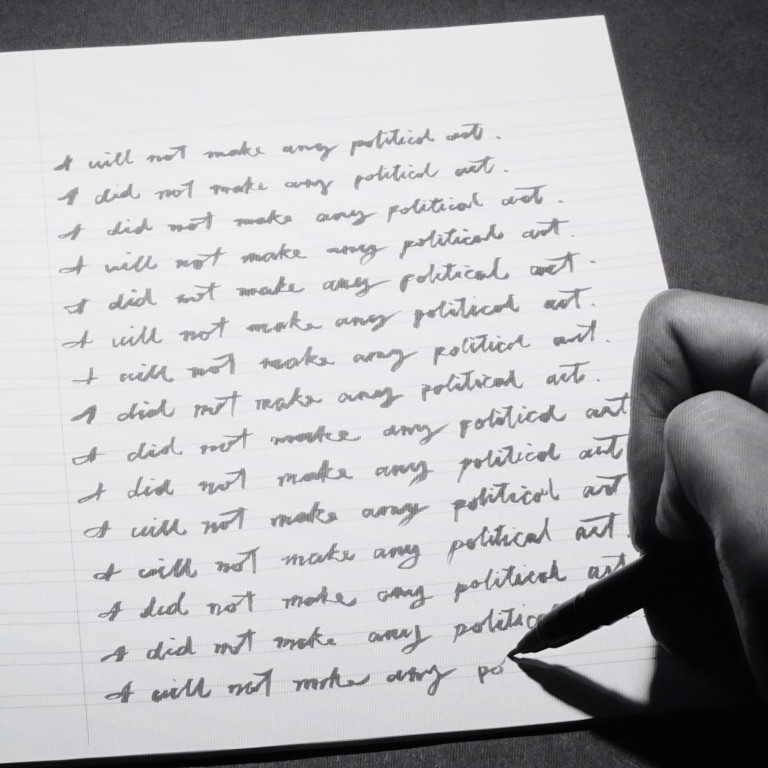 I will not make any political art.
I did not make any political art.
I did not make any political art.
I will not make any political art.
I did not make any political art.
I will not make any political art.
I will not make any political art.
I did not make any political art.
I did not make any political art
I did not make any political art
I will not make any political art
I will not make any political art.
I did not make any political art
I did not make any politic
I will not make any po